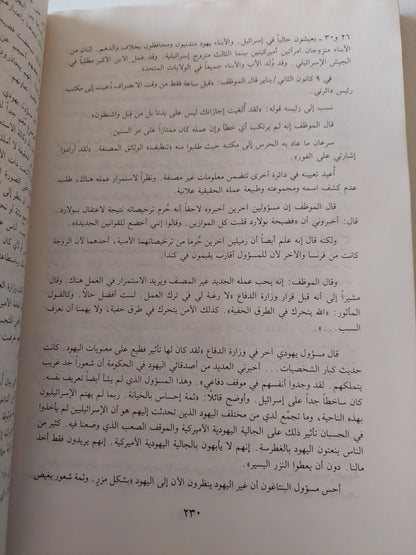 ٢٦ و٣٠ ـ يعيشون حالياً في إسرائيل. والأبناء يهود متدينون ومحافظون بخلاف والدهم. اثنان من
الأبناء متزوجان امرأتين أميركيتين بينما الثالث متزوج إسرائيلية. وقد عمل الابن الأكبر مظلياً في
الجيش الإسرائيلي. وقد وُلد الأب والأبناء جميعاً في الولايات المتحدة
في ٩ كانون الثاني /يناير قال الموظف: «قبل ساعة فقط من وقت الانصراف دُعيت إلى مكتب
رئيس دائرتي.
نسب إلى رئيسه قوله: «لقد أُلغيت إجازاتك ليس على يدنا بل من قبل واشنطون».
قال الموظف إنه لم يرتكب أي خطأ وإن عمله كان ممتازاً على مر السنين.
سرعان ما عاد به الحرس إلى مكتبه حيث طلبوا منه «تنظيف» الوثائق المصنفة «لقد أرادوا
إشارتي على الفور».
أعيد تعيينه في دائرة أخرى تتضمن معلومات غير مصنفة. ونظراً لاستمرار عمله هناك، طلب
عدم كشف اسمه ومجموعته وطبيعة عمله الحقيقية علانية.
قال الموظف إن مسؤولين آخرين أخبروه لاحقاً أنه حُرم ترخيصاته نتيجة لاعتقال بولارد.
قال: أخبروني أن «فضيحة بولارد قلبت كل الموازين. وقالوا إنني أخضع للقوانين الجديدة».
ولكنه قال إنه علم أيضاً أن زميلين آخرين حُرما من ترخيصاتهما الأمنية، أحدهما لأن الزوجة
كانت من فرنسا والآخر لأن للمسؤول أقارب يقيمون في كندا.
وقال الموظف: إنه يحب عمله الجديد غير المصنف ويريد الاستمرار في العمل هناك. وقال
مشيراً إلى أنه قبل قرار وزارة الدفاع «لا رغبة لي في ترك العمل. لست أفضل حالاً. وكالقول
المأثور: «الله يتحرك في الطرق الخفية». كذلك الأمن يتحرك في طرق خفية، ولا يهمنا أن نعرف
السبب...».
قال مسؤول يهودي آخر في وزارة الدفاع «لقد كان لها تأثير فظيع على معنويات اليهود. كانت
حديث كبار الشخصيات... أخبرني العديد من أصدقائي اليهود في الحكومة أن شعوراً جد غريب
يتملكهم. لقد وجدوا أنفسهم في موقف دفاعي». وهذا المسؤول الذي لم يشأ أيضاً تعريف نفسه.
كان ساخطاً جداً على إسرائيل. وأوضح قائلاً: «ثمة إحساس بالخيانة. ربما لم يهتم الإسرائيليون
بهذه الناحية، وما تجمّع لدي من مختلف اليهود الذين تحدثت إليهم هو أن الإسرائيليين لم يأخذوا
في الحسبان تأثير ذلك على الجالية اليهودية الأميركية والموقف الصعب الذي وضعنا فيه. كثير من
الناس ينعتون اليهود بالغطرسة. إنهم لا يأبهون بالجالية اليهودية الأميركية. إنهم يريدون فقط أخذ
مالنا. دون أن يعطوا النزر اليسير».
أحس مسؤول البنتاغون أن غير اليهود ينظرون الآن إلى اليهود «بشكل مزرٍ. وثمة شعور بغيض
٢٣٠